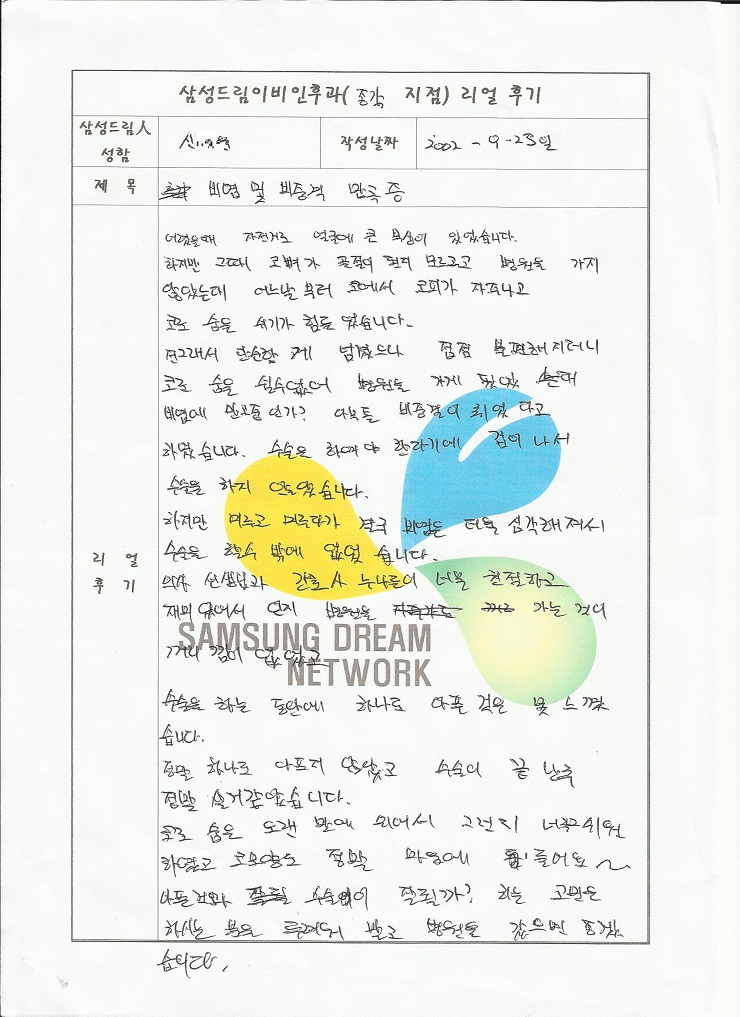 삼성드림이비인후과( 종각 지점) 리얼 후기
삼성드림人
성함
작성날짜
2002 - 9 -25일
제 목
비염 및 비중격 만곡증
어렸을때 자전거로 얼굴에 큰 부상이 있었습니다.
하지만 그때 코뼈가 골절이 된지 모르고 병원을 가지
않았는데 어느날 부터 코에서 코피가 자주나고
코로 숨을 쉬기가 힘들 었습니다.
단순하 게 넘겼으나 점점 불편해지더니
코로 숨을 쉴수없어 병원을 가게 됬었 는데
비염에 만곡증인가? 아무튼 비중격이 휘었 다고
하였습니다. 수술은 하여야 한다기에 겁이 나서
수술을 하지 않았습니다.
하지만 미루고 미루다가 결국 비염은 더욱 심각해져서
수술을 할수 밖에 없었 습니다.
의사 선생님과 간호사 누나들이 너무 친절하고
재미 있어서 인지 병원을 가는 것이
꺼리낌이 없었고
SAMSUNG DREAM
NETWORK
수술을 하는 동안에 하나도 아픈 것은 못 느꼈
습니다.
정말 하나도 아프지 않았고 수술이 끝 난후
정말 살거같았습니다.
코로 숨은 오랜 만에 쉬어서 그런지 너무 쉬원
하였고 코모양도 정말 마음에 들어요~
아플려와 수술이 잘될까? 하는 고민은
하시는 분은 바로 병원을 갔으면 좋겠
습니다.
리 얼
후 기